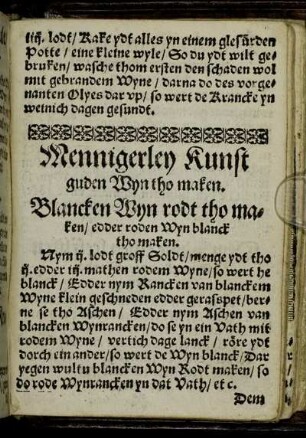 iiij. lodt / Kake ydt alles yn einem glesuͤrden
Potte / eine kleine wyle / So du ydt wilt ge-
bruken / wasche thom ersten den schaden wol
mit gebrandem Wyne / darna do des vorge-
nanten Olyes dar vp / so wert de Krancke yn
weinich dagen gesundt.
Mennigerley Kunst
guden Wyn tho maken.
Blancken Wyn rodt tho ma-
ken / edder roden Wyn blanck
tho maken.
Nym ij. lodt groff Soldt / menge ydt tho
ij. edder iij. mathen rodem Wyne / so wert he
blanck / Edder nym Rancken van blanckem
Wyne klein geschneden edder geraspet / ber-
ne se tho Aschen / Edder nym Aschen van
blancken Wynrancken / do se yn ein Vath mit
rodem Wyne / vertich dage lanck / roͤre ydt
dorch ein ander / so wert de Wyn blanck / Dar
yegen wultu blancken Wyn Rodt maken / so
do rode Wynrancken yn dat Vath / et c.
Dem